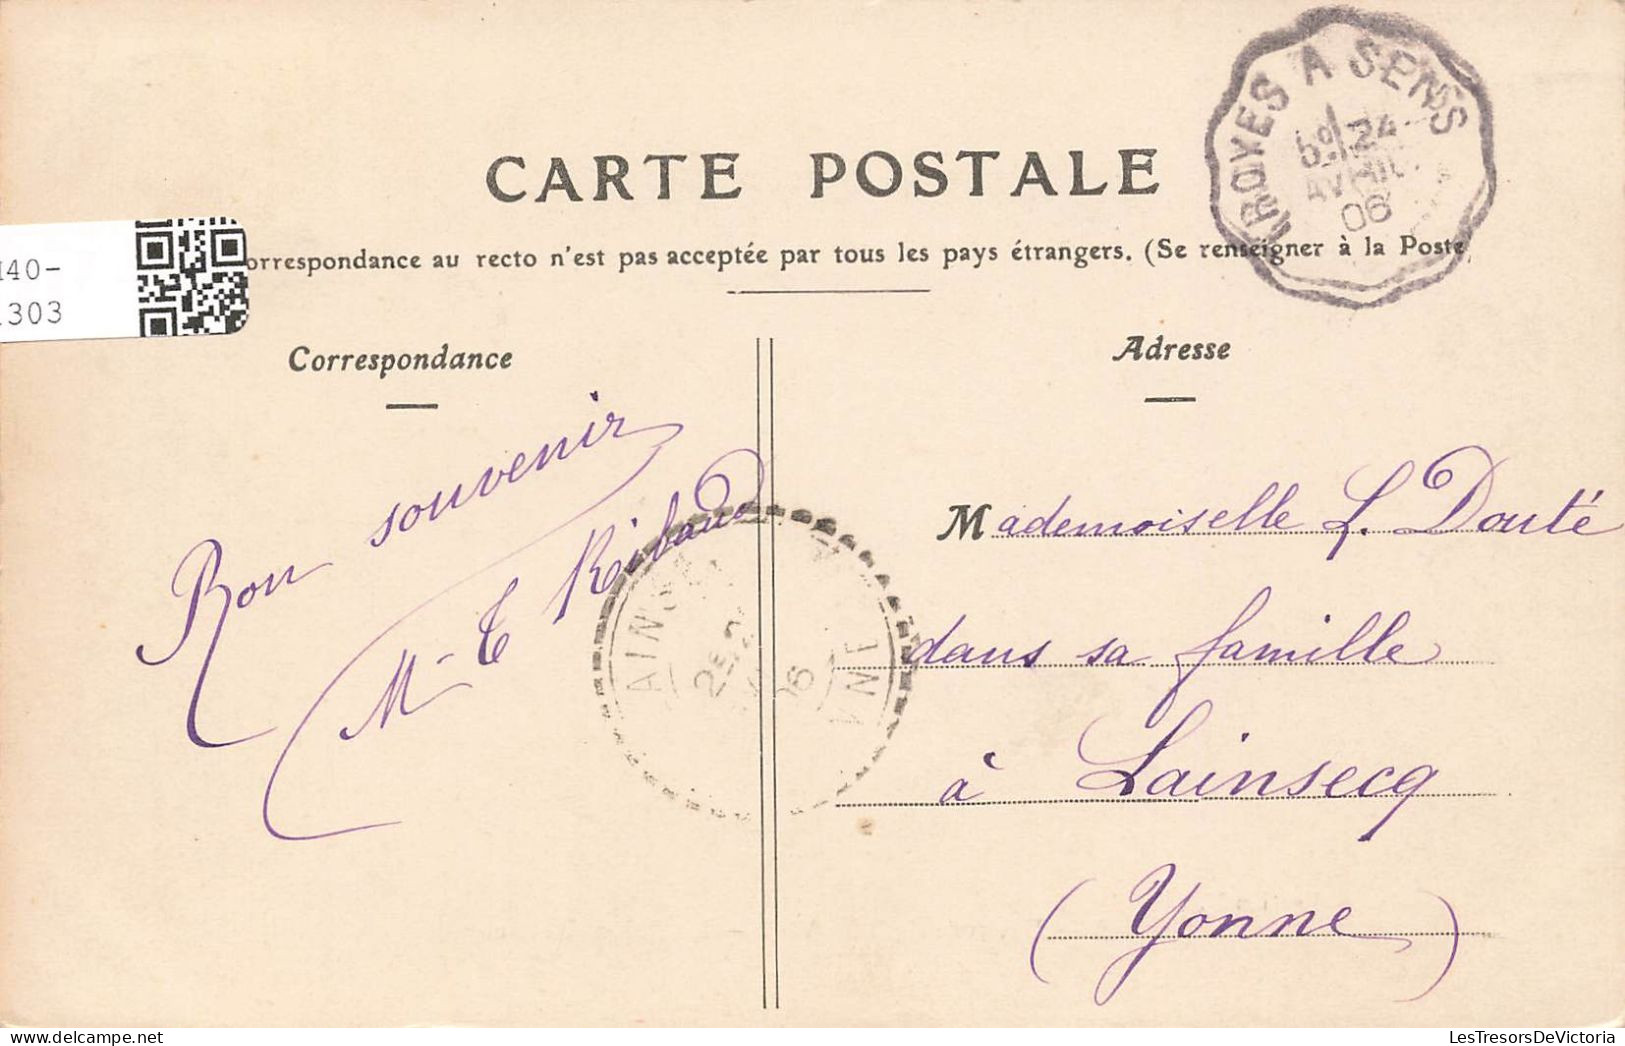 CARTE POSTALE
orrespondance au recto n'est pas acceptée par tous les pays étrangers. (Se renseigner à la Poste)
TROYES A SENS
24
AVRIL
06
I40-
1303
Correspondance
Bon souvenir
M-T Ribaud
AINSE
25
06
NNE
Adresse
Mademoiselle L. Douté
dans sa famille
à Lainsecq
(Yonne)
delcampe.net
LesTresorsDeVictoria